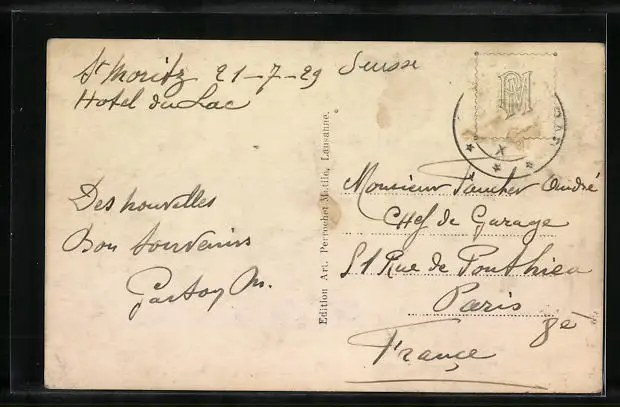 St Moritz 21-7-29 Suisse
Hotel du Lac
Des nouvelles
Bon Souvenirs
M.
Edition Art. Perrochet-Matile, Lausanne.
PM
Monsieur Faucher André
Chef de Garage
51 Rue de Ponthieu
Paris
8e
France